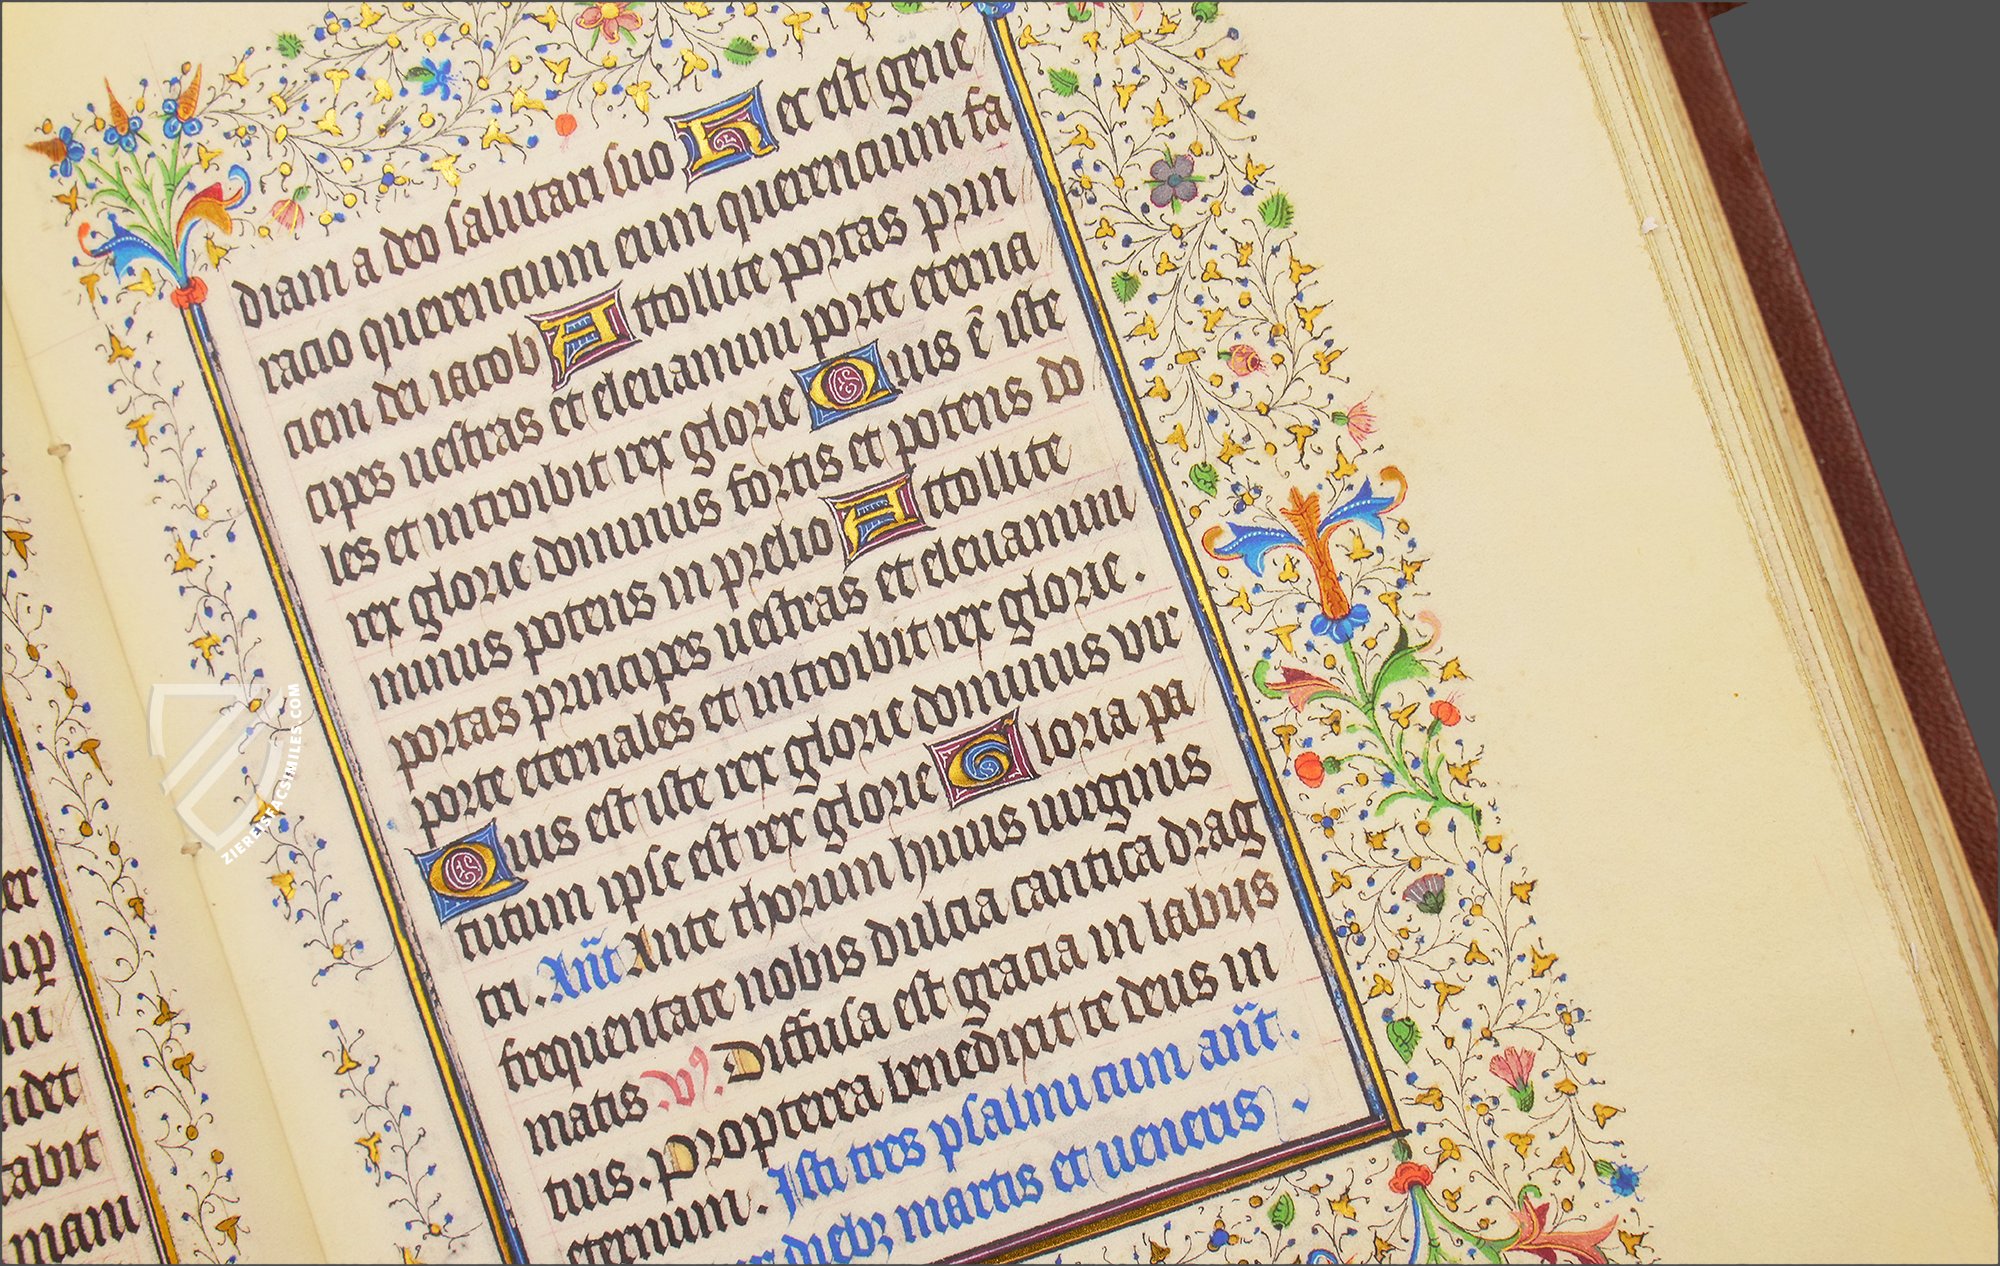 diam a deo salutari suo Hec est gene
racio querencium eum querencium fa
ciem dei iacob Attollite portas prin
cipes uestras et eleuamini porte eterna
les et introibit rex glorie Quis ē iste
rex glorie dominus fortis et potens do
minus potens in prelio Attollite
portas principes uestras et eleuamini
porte eternales et introibit rex glorie .
Quis est iste rex glorie dominus vir
tutum ipse est rex glorie Gloria pa
tri . Añt Ante thorum huius uirginis
frequentate nobis dulcia cantica drag
matis .V. Diffusa est gracia in labijs
tuis. Propterea benedixit te deus in
eternum . Isti tres psalmi cum añt .
diebꝫ martis et ueneris .
ZIEREISFACSIMILES.COM